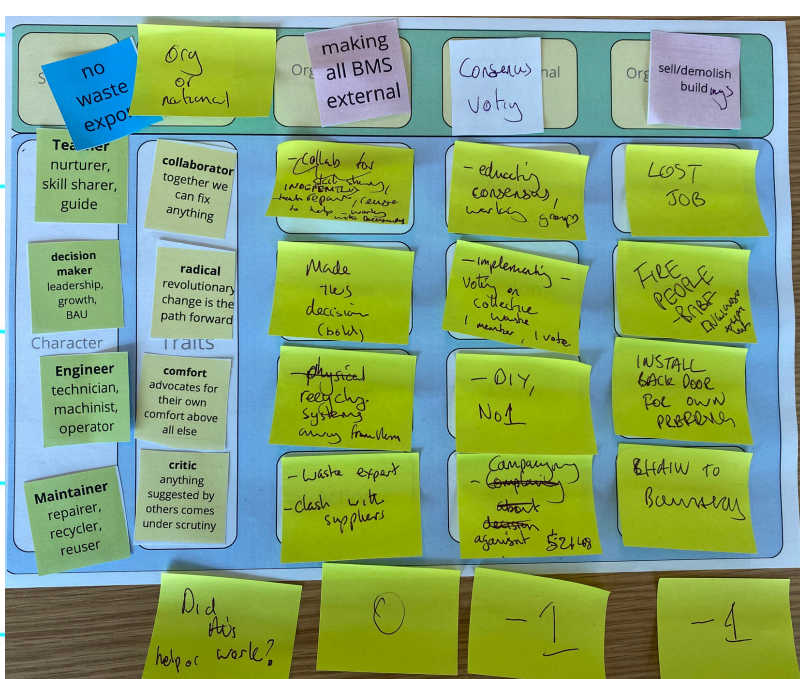 no
waste
expo
Org
or
national
Org
making
all BMS
external
Consensus
Voting
nal
Org
sell/demolish
buildings
Teacher
nurturer,
skill sharer,
guide
collaborator
together we
can fix
anything
- Collab for
skill sharing,
- tech repair, reuse
to help
- educating
consensus,
working groups
LOST
JOB
decision
maker
leadership,
growth,
BAU
radical
revolutionary
change is the
path forward
Made
this
decision
(bold)
- implementing -
voting on
collective
waste
1 member, 1 vote
FIRE
PEOPLE
Character
Traits
Engineer
technician,
machinist,
operator
comfort
advocates for
their own
comfort above
all else
- physical
recyclng.
systems
away from them
- DIY,
No1
INSTALL
BACK DOOR
FOR OWN
Maintainer
repairer,
recycler,
reuser
critic
anything
suggested by
others comes
under scrutiny
- waste expert
- clash with
suppliers
Campaigning
- complaining
about
decision
against
TO
Did
this
help or work?
0
-1
-1